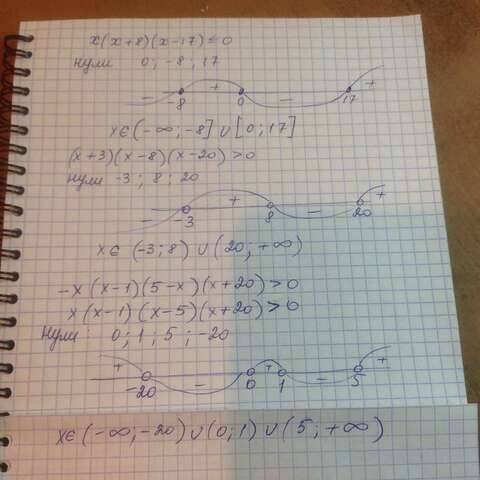 x(x+8)(x-17)≤0
нули 0; -8; 17
- + - +
-8 0 17
x∈(-∞;-8]∪[0;17]
(x+3)(x-8)(x-20)>0
нули -3; 8; 20
- + - +
-3 8 20
x∈(-3;8)∪(20;+∞)
-x(x-1)(5-x)(x+20)>0
x(x-1)(x-5)(x+20)>0
Нули: 0; 1; 5; -20
+ - + - +
-20 0 1 5
x∈(-∞;-20)∪(0;1)∪(5;+∞)